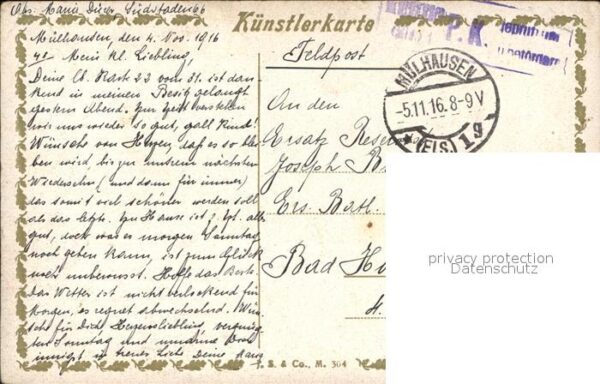 Abs: Maria
Künstlerkarte
P. K.
Mülhausen, den 4. Nov. 1916
Mein kl. Liebling,
Feldpost
MÜLHAUSEN
-5.11.16. 8-9 V
★ (ELS) 19
Deine lb. Karte 23 vom 31. ist dan-
kend in meinen Besitz gelangt
gestern Abend. Zur Zeit verstehen
wir uns wieder so gut, gell Kind!
Wünsche von Herzen, daß es so blei-
ben wird, bis zur unserm nächsten
Wiedersehn (und dann für immer)
das somit viel schöner werden soll
als das letzte. Zu Hause ist z. Zt. alles
gut, doch was es morgen Sonntag
noch geben kann, ist zum Glück
noch unbewusst. Hoffe das Beste.
Das Wetter ist nicht verlockend für
morgen, es regnet abwechselnd. Wün-
sche für Dich Herzensliebling, vergnüg-
ten Sonntag und
innigst in treuer Liebe Deine
An den
Ersatz
Joseph
Ers. Batl.
Bad
privacy protection
Datenschutz
& Co., M. 304